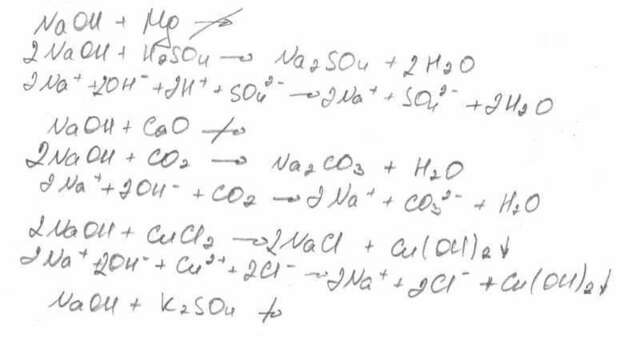 NaOH + Mg ↛
2NaOH + H₂SO₄ → Na₂SO₄ + 2H₂O
2Na⁺ + 2OH⁻ + 2H⁺ + SO₄²⁻ → 2Na⁺ + SO₄²⁻ + 2H₂O
NaOH + CaO ↛
2NaOH + CO₂ → Na₂CO₃ + H₂O
2Na⁺ + 2OH⁻ + CO₂ → 2Na⁺ + CO₃²⁻ + H₂O
2NaOH + CuCl₂ → 2NaCl + Cu(OH)₂↓
2Na⁺ + 2OH⁻ + Cu²⁺ + 2Cl⁻ → 2Na⁺ + 2Cl⁻ + Cu(OH)₂↓
NaOH + K₂SO₄ ↛